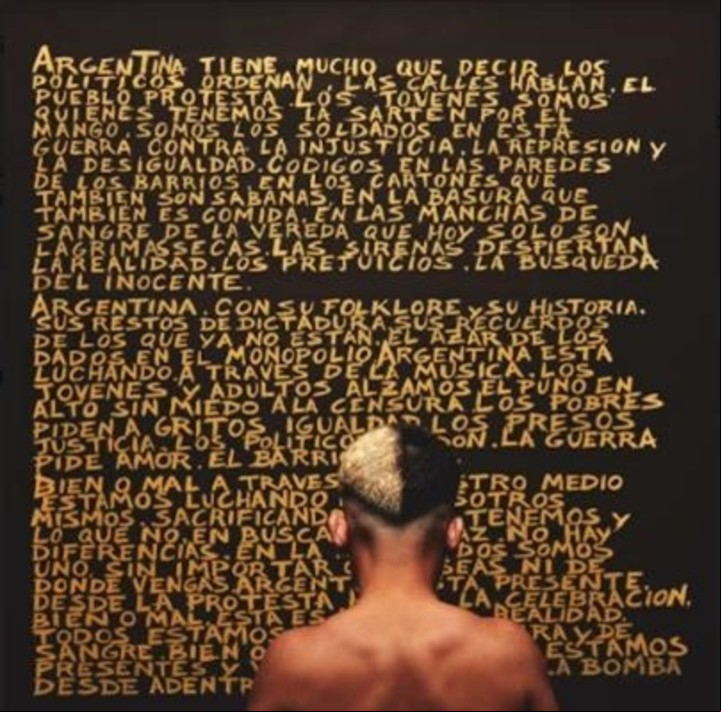 ARGENTINA TIENE MUCHO QUE DECIR. LOS
POLITICOS ORDENAN, LAS CALLES HABLAN. EL
PUEBLO PROTESTA. LOS JOVENES SOMOS
QUIENES TENEMOS LA SARTEN POR EL
MANGO. SOMOS LOS SOLDADOS EN ESTA
GUERRA CONTRA LA INJUSTICIA. LA REPRESION Y
LA DESIGUALDAD. CODIGOS EN LAS PAREDES
DE LOS BARRIOS. EN LOS CARTONES QUE
TAMBIEN SON SABANAS. EN LA BASURA QUE
TAMBIEN ES COMIDA. EN LAS MANCHAS DE
SANGRE DE LA VEREDA QUE HOY SOLO SON
LAGRIMAS SECAS. LAS SIRENAS DESPIERTAN
LA REALIDAD. LOS PREJUICIOS. LA BUSQUEDA
DEL INOCENTE.
ARGENTINA. CON SU FOLKLORE Y SU HISTORIA.
SUS RESTOS DE DICTADURA SUS RECUERDOS
DE LOS QUE YA NO ESTAN. EL AZAR DE LOS
DADOS EN EL MONOPOLIO ARGENTINA ESTA
LUCHANDO. A TRAVES DE LA MUSICA. LOS
JOVENES Y ADULTOS ALZAMOS EL PUÑO EN
ALTO SIN MIEDO A LA CENSURA. LOS POBRES
PIDEN A GRITOS IGUALDAD. LOS PRESOS
JUSTICIA. LOS POLITICO ON. LA GUERRA
PIDE AMOR. EL BARRI
BIEN O MAL A TRAVES STRO MEDIO
ESTAMOS LUCHANDO SOTROS
MISMOS. SACRIFICAND TENEMOS Y
LO QUE NO. EN BUSCA AZ. NO HAY
DIFERENCIAS. EN LA DOS SOMOS
UNO. SIN IMPORTAR SEAS NI DE
DONDE VENGAS ARGENT TA PRESENTE.
DESDE LA PROTESTA LA CELEBRACION.
BIEN O MAL. ESTA ES REALIDAD.
TODOS ESTAMOS RA Y DE
SANGRE. BIEN O ESTAMOS
PRESENTES Y LA BOMBA
DESDE ADENTR